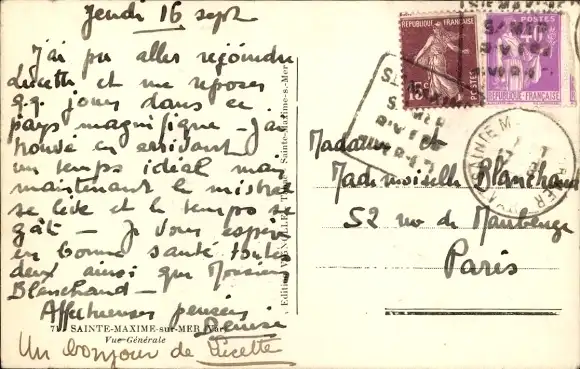 Jeudi 16 sept
J'ai pu aller rejoindre
Lucette et me reposer
q.q. jours dans ce
pays magnifique - J'ai
trouvé en arrivant
un temps idéal mais
maintenant le mistral
se lève et le temps se
gâte - Je vous espère
en bonne santé toutes
deux ainsi que Monsieur
Blanchand -
Affectueuses pensées
Denise
SAINTE-MAXIME-sur-MER (Var)
Vue Générale
Un bonjour de Lucette
Sainte-Maxime-s-Mer
REPUBLIQUE FRANÇAISE
15c
POSTES
POSTES
REPUBLIQUE FRANÇAISE
SAINTE M
Madame et
Mademoiselle Blanchand
52 rue de Maubeuge
Paris